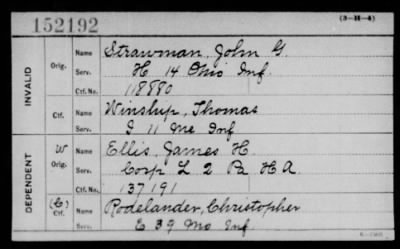 152192
(3-H-4)
INVALID
Orig.
Name Strawman, John G.
Serv. H 14 Ohio Inf
Ctf. No. 118880
Ctf.
Name Winship, Thomas
Serv. I 11 Me Inf
DEPENDENT
W
Orig.
Name Ellis, James H
Serv. Corp L 2 Pa H A.
Ctf. No. 137191
(C)
Ctf.
Name Rodelander, Christopher
Serv. E 39 Mo Inf